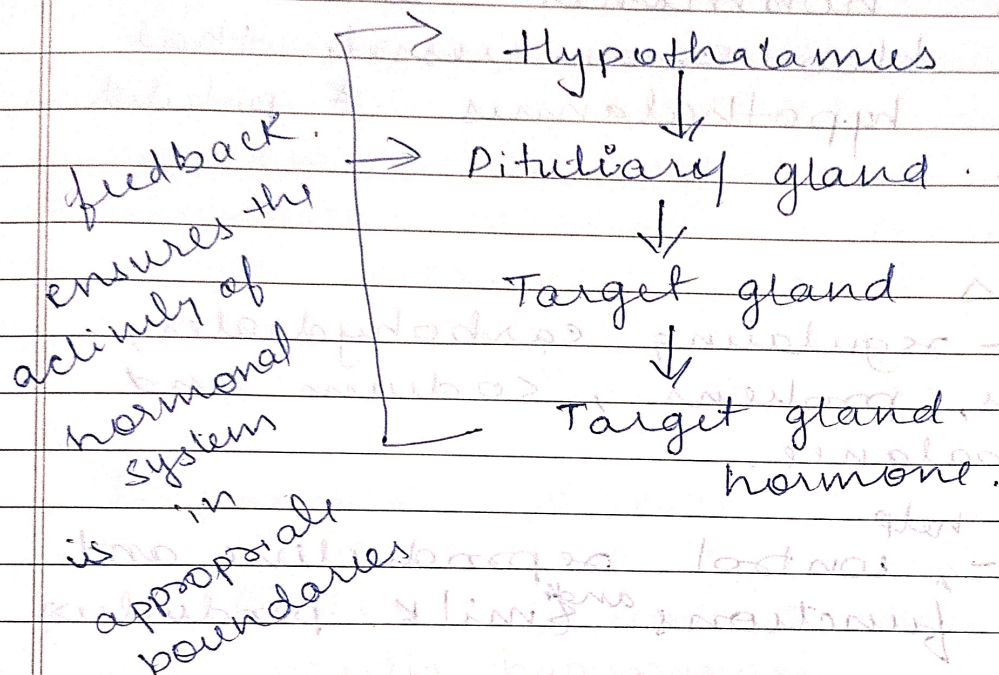 Hypothalamus
Pituitary gland.
Target gland
Target gland
hormone.
feedback.
ensures the
activity of
hormonal
system
is in
appropriate
boundaries